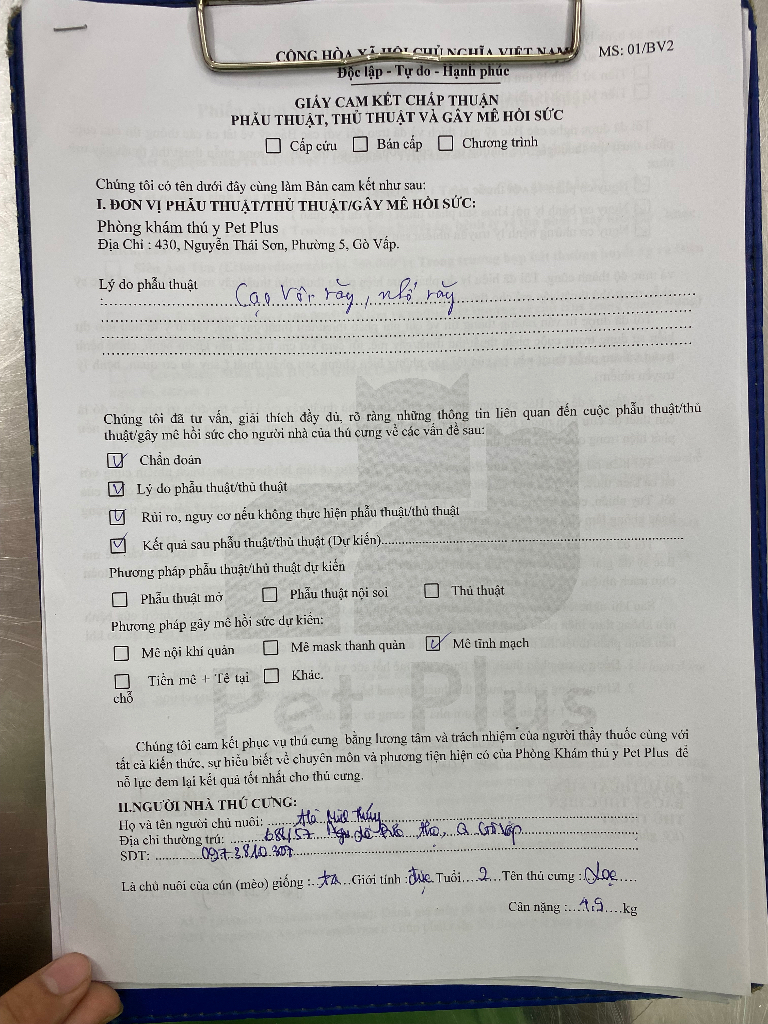 CỘNG HÒA XÃ HỘI CHỦ NGHĨA VIỆT NAM
MS: 01/BV2
Độc lập - Tự do - Hạnh phúc
GIẤY CAM KẾT CHẤP THUẬN
PHẪU THUẬT, THỦ THUẬT VÀ GÂY MÊ HỒI SỨC
☐ Cấp cứu ☐ Bán cấp ☐ Chương trình
Chúng tôi có tên dưới đây cùng làm Bản cam kết như sau:
I. ĐƠN VỊ PHẪU THUẬT/THỦ THUẬT/GÂY MÊ HỒI SỨC:
Phòng khám thú y Pet Plus
Địa Chỉ : 430, Nguyễn Thái Sơn, Phường 5, Gò Vấp.
Lý do phẫu thuật
: Cạo vôi răng, nhổ răng
Chúng tôi đã tư vấn, giải thích đầy đủ, rõ ràng những thông tin liên quan đến cuộc phẫu thuật/thủ
thuật/gây mê hồi sức cho người nhà của thú cưng về các vấn đề sau:
☑ Chẩn đoán
☑ Lý do phẫu thuật/thủ thuật
☑ Rủi ro, nguy cơ nếu không thực hiện phẫu thuật/thủ thuật
☑ Kết quả sau phẫu thuật/thủ thuật (Dự kiến)
Phương pháp phẫu thuật/thủ thuật dự kiến
☐ Phẫu thuật mở ☐ Phẫu thuật nội soi ☐ Thủ thuật
Phương pháp gây mê hồi sức dự kiến:
☐ Mê nội khí quản ☐ Mê mask thanh quản ☑ Mê tĩnh mạch
☐ Tiền mê + Tê tại ☐ Khác.
chỗ
Pet Plus
Chúng tôi cam kết phục vụ thú cưng bằng lương tâm và trách nhiệm của người thầy thuốc cùng với
tất cả kiến thức, sự hiểu biết về chuyên môn và phương tiện hiện có của Phòng Khám thú y Pet Plus để
nỗ lực đem lại kết quả tốt nhất cho thú cưng.
II.NGƯỜI NHÀ THÚ CƯNG:
Họ và tên người chủ nuôi:
Địa chỉ thường trú: 684/57
SĐT:
Là chủ nuôi của cún (mèo) giống : ta Giới tính : đực Tuổi 2 Tên thú cưng :
Cân nặng : 4.9 kg